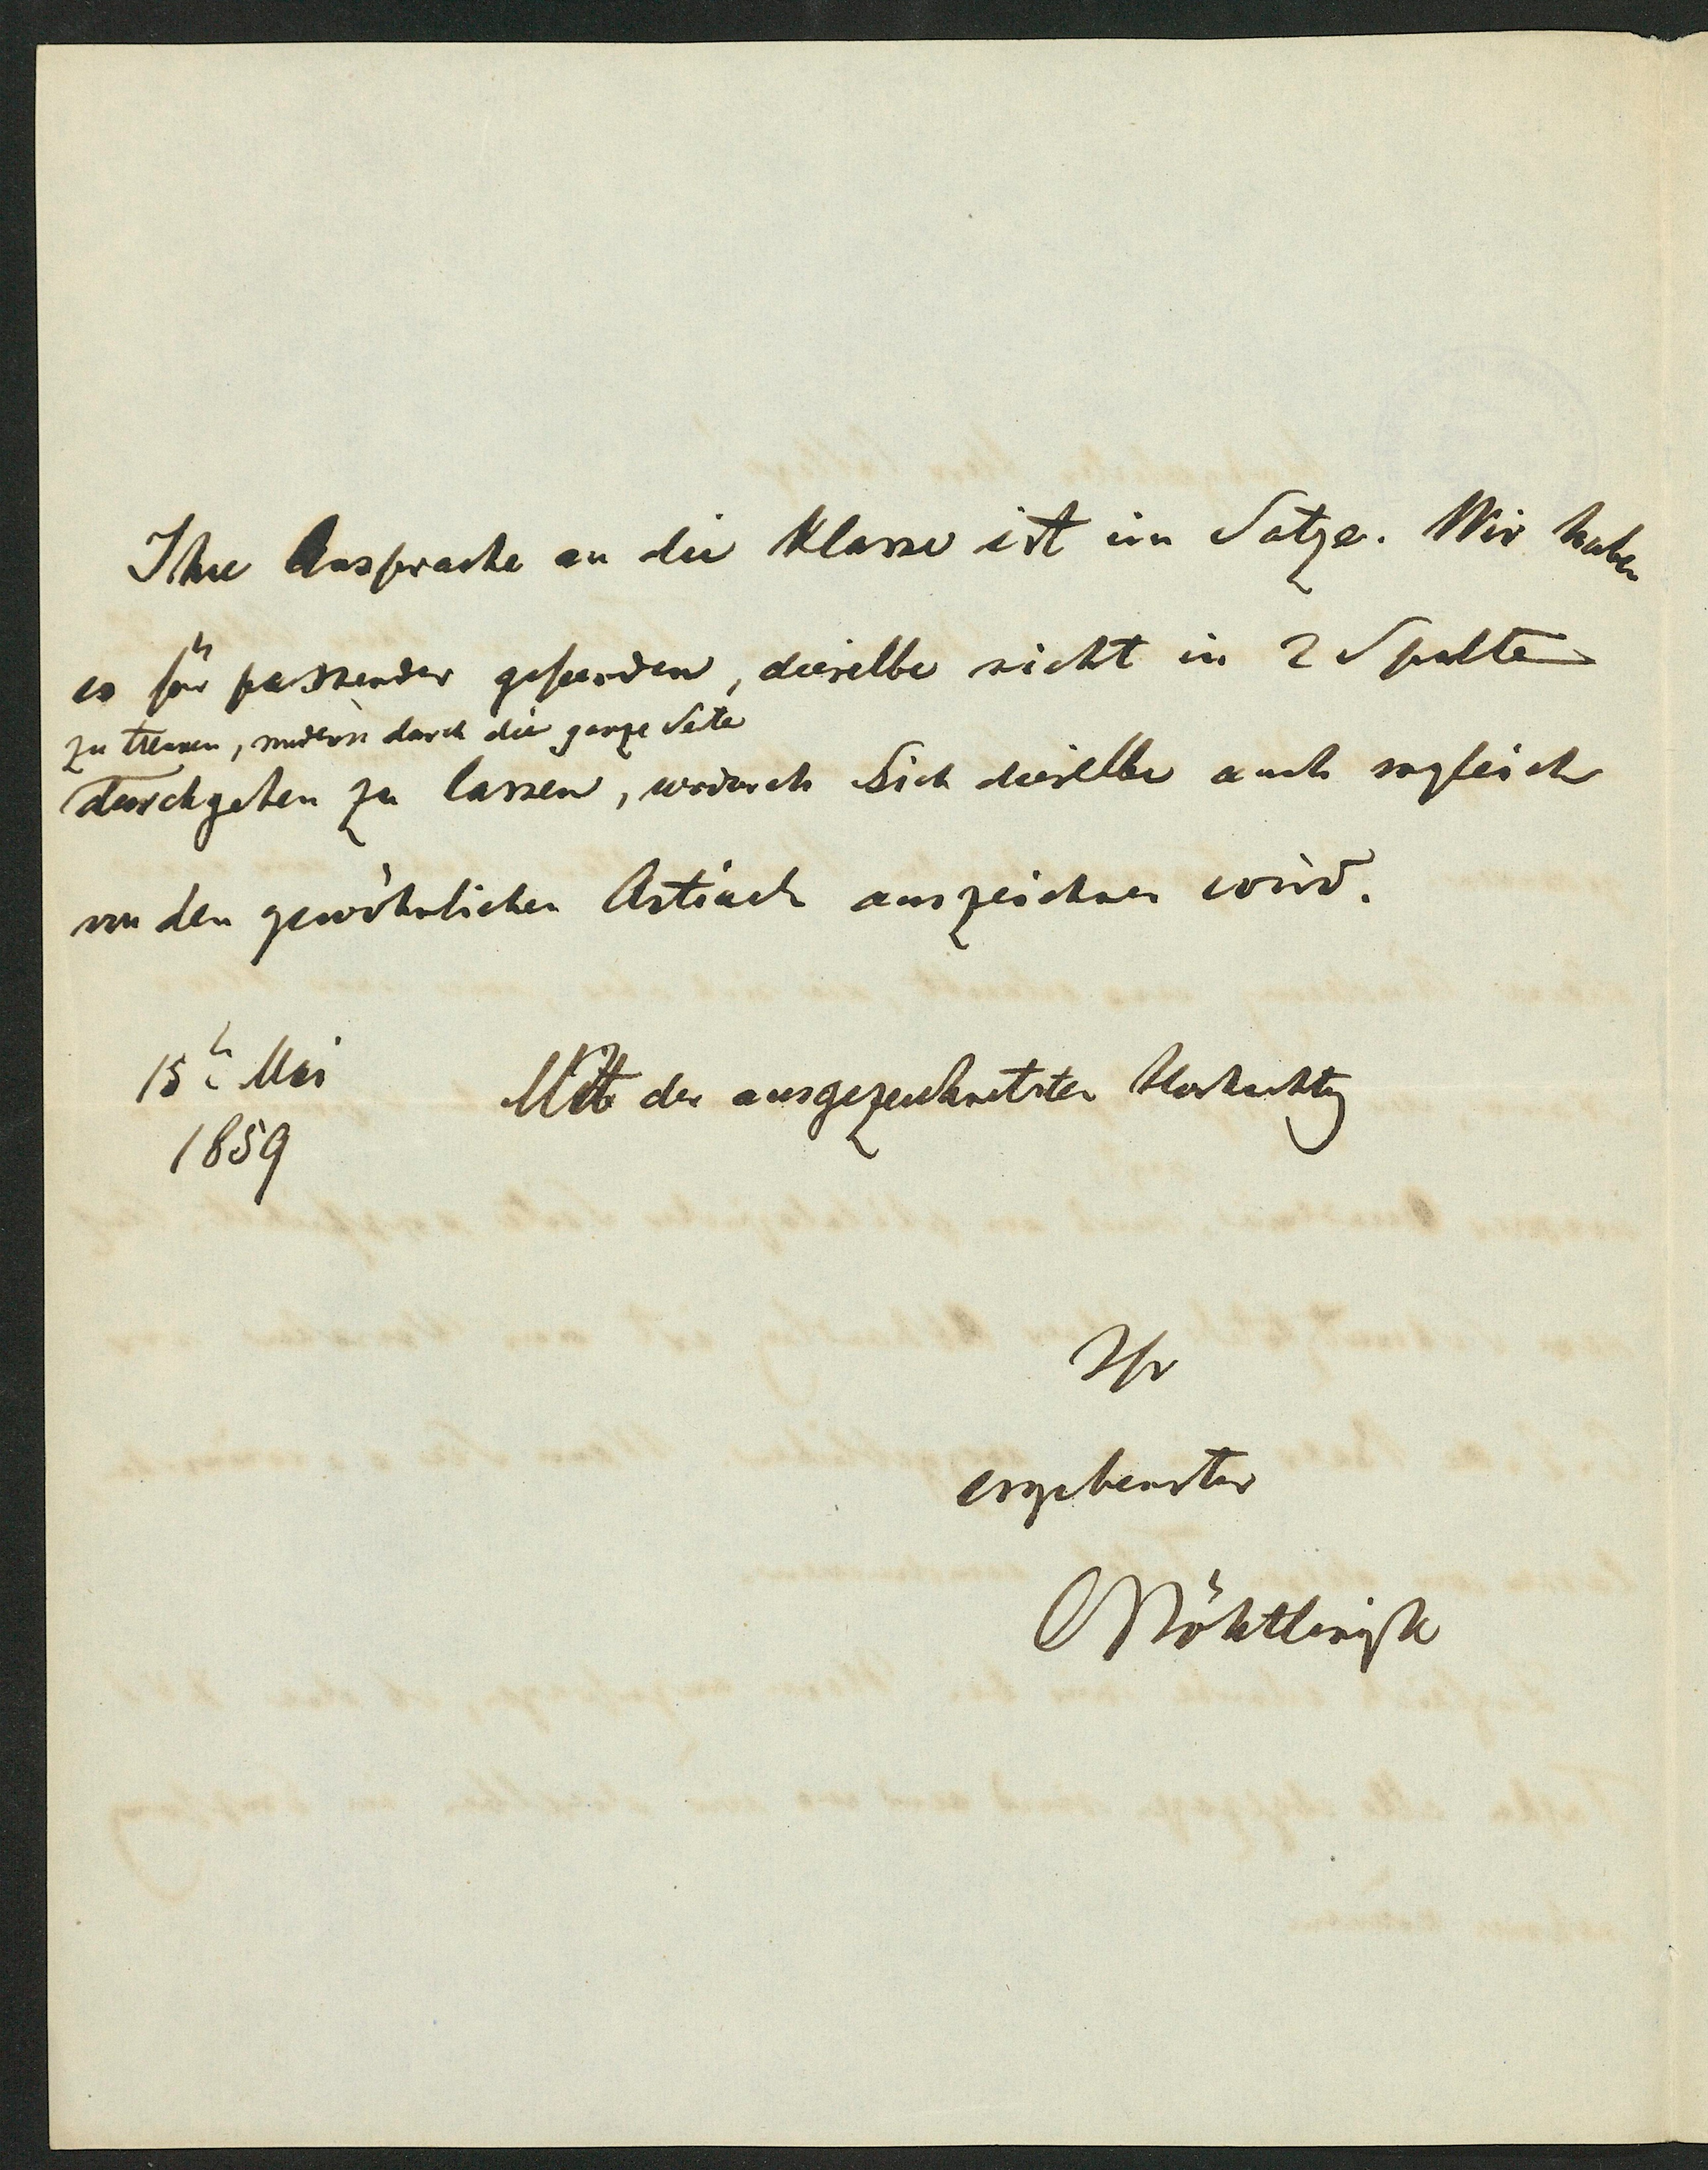 Ihre Ansprache an die Klasse ist im Satze. Wir haben
es für passender gefunden, dieselbe nicht in 2 Spalten
zu trennen, sondern durch die ganze Seite
durchgehen zu lassen, wodurch sich dieselbe auch sogleich
von den gewöhnlichen Artikeln auszeichnen wird.
15 Mai
1859
Mit der ausgezeichnetsten Hochachtung
Ihr
ergebenster
OBöhtlingk